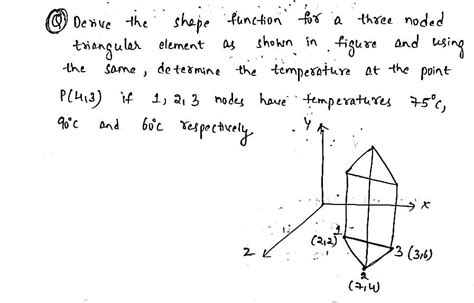 Q Derive the shape function for a three noded
triangular element as shown in figure and using
the same, determine the temperature at the point
P(4,3) if 1, 2, 3 nodes have temperatures 75°C,
90°C and 60°C respectively.
Y
X
Z
1
(2,2)
3 (3,6)
2
(7,4)